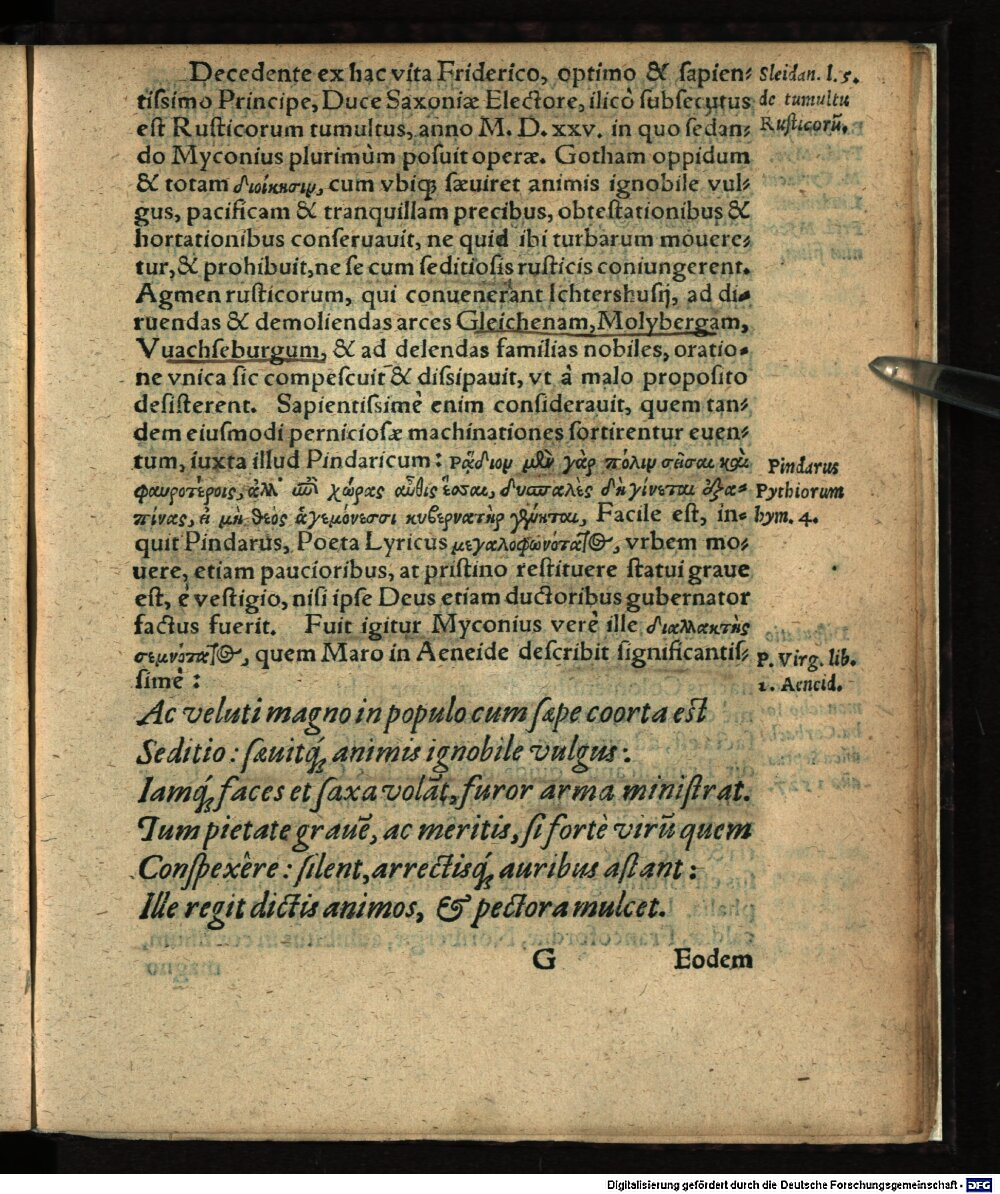 Decedente ex hac vita Friderico, optimo & sapien⸗
tissimo Principe, Duce Saxoniæ Electore, ilicò subsecutus
est Rusticorum tumultus, anno M. D. XXV. in quo sedan⸗
do Myconius plurimùm posuit operæ. Gotham oppidum
& totam διοίκησιν, cum vbiq; sæuiret animis ignobile vul⸗
gus, pacificam & tranquillam precibus, obtestationibus &
hortationibus conseruauit, ne quid ibi turbarum mouere⸗
tur, & prohibuit, ne se cum seditiosis rusticis coniungerent.
Agmen rusticorum, qui conuenerant Ichtershusij, ad di⸗
ruendas & demoliendas arces Gleichenam, Molybergam,
Vuachseburgum, & ad delendas familias nobiles, oratio⸗
ne vnica sic compescuit & dissipauit, vt à malo proposito
desisterent. Sapientissimè enim considerauit, quem tan⸗
dem eiusmodi perniciosæ machinationes sortirentur euen⸗
tum, iuxta illud Pindaricum: ῥᾴδιον μὲν γὰρ πόλιν σεῖσαι καὶ
φαυροτέροις, ἀλλ' ἐπὶ χώρας αὖθις ἕσσαι, δυσπαλὲς δὴ γίνεται ἐξα⸗
πίνας, εἰ μὴ θεὸς ἁγεμόνεσσι κυβερνατὴρ γένηται, Facile est, in⸗
quit Pindarus, Poeta Lyricus μεγαλοφωνότατος, vrbem mo⸗
uere, etiam paucioribus, at pristino restituere statui graue
est, è vestigio, nisi ipse Deus etiam ductoribus gubernator
factus fuerit. Fuit igitur Myconius verè ille διαλλακτὴς
σεμνότατος, quem Maro in Aeneide describit significantis⸗
simè:
Ac veluti magno in populo cum sæpe coorta est
Seditio: sæuitq; animis ignobile vulgus:
Iamq; faces et saxa volāt, furor arma ministrat.
Tum pietate grauē, ac meritis, si fortè virū quem
Conspexêre: silent, arrectisq; auribus astant:
Ille regit dictis animos, & pectora mulcet.
G Eodem
Sleidan. l. 5.
de tumultu
Rusticorū.
Pindarus
Pythiorum
hym. 4.
P. Virg. lib.
1. Aeneid.
Digitalisierung gefördert durch die Deutsche Forschungsgemeinschaft - DFG